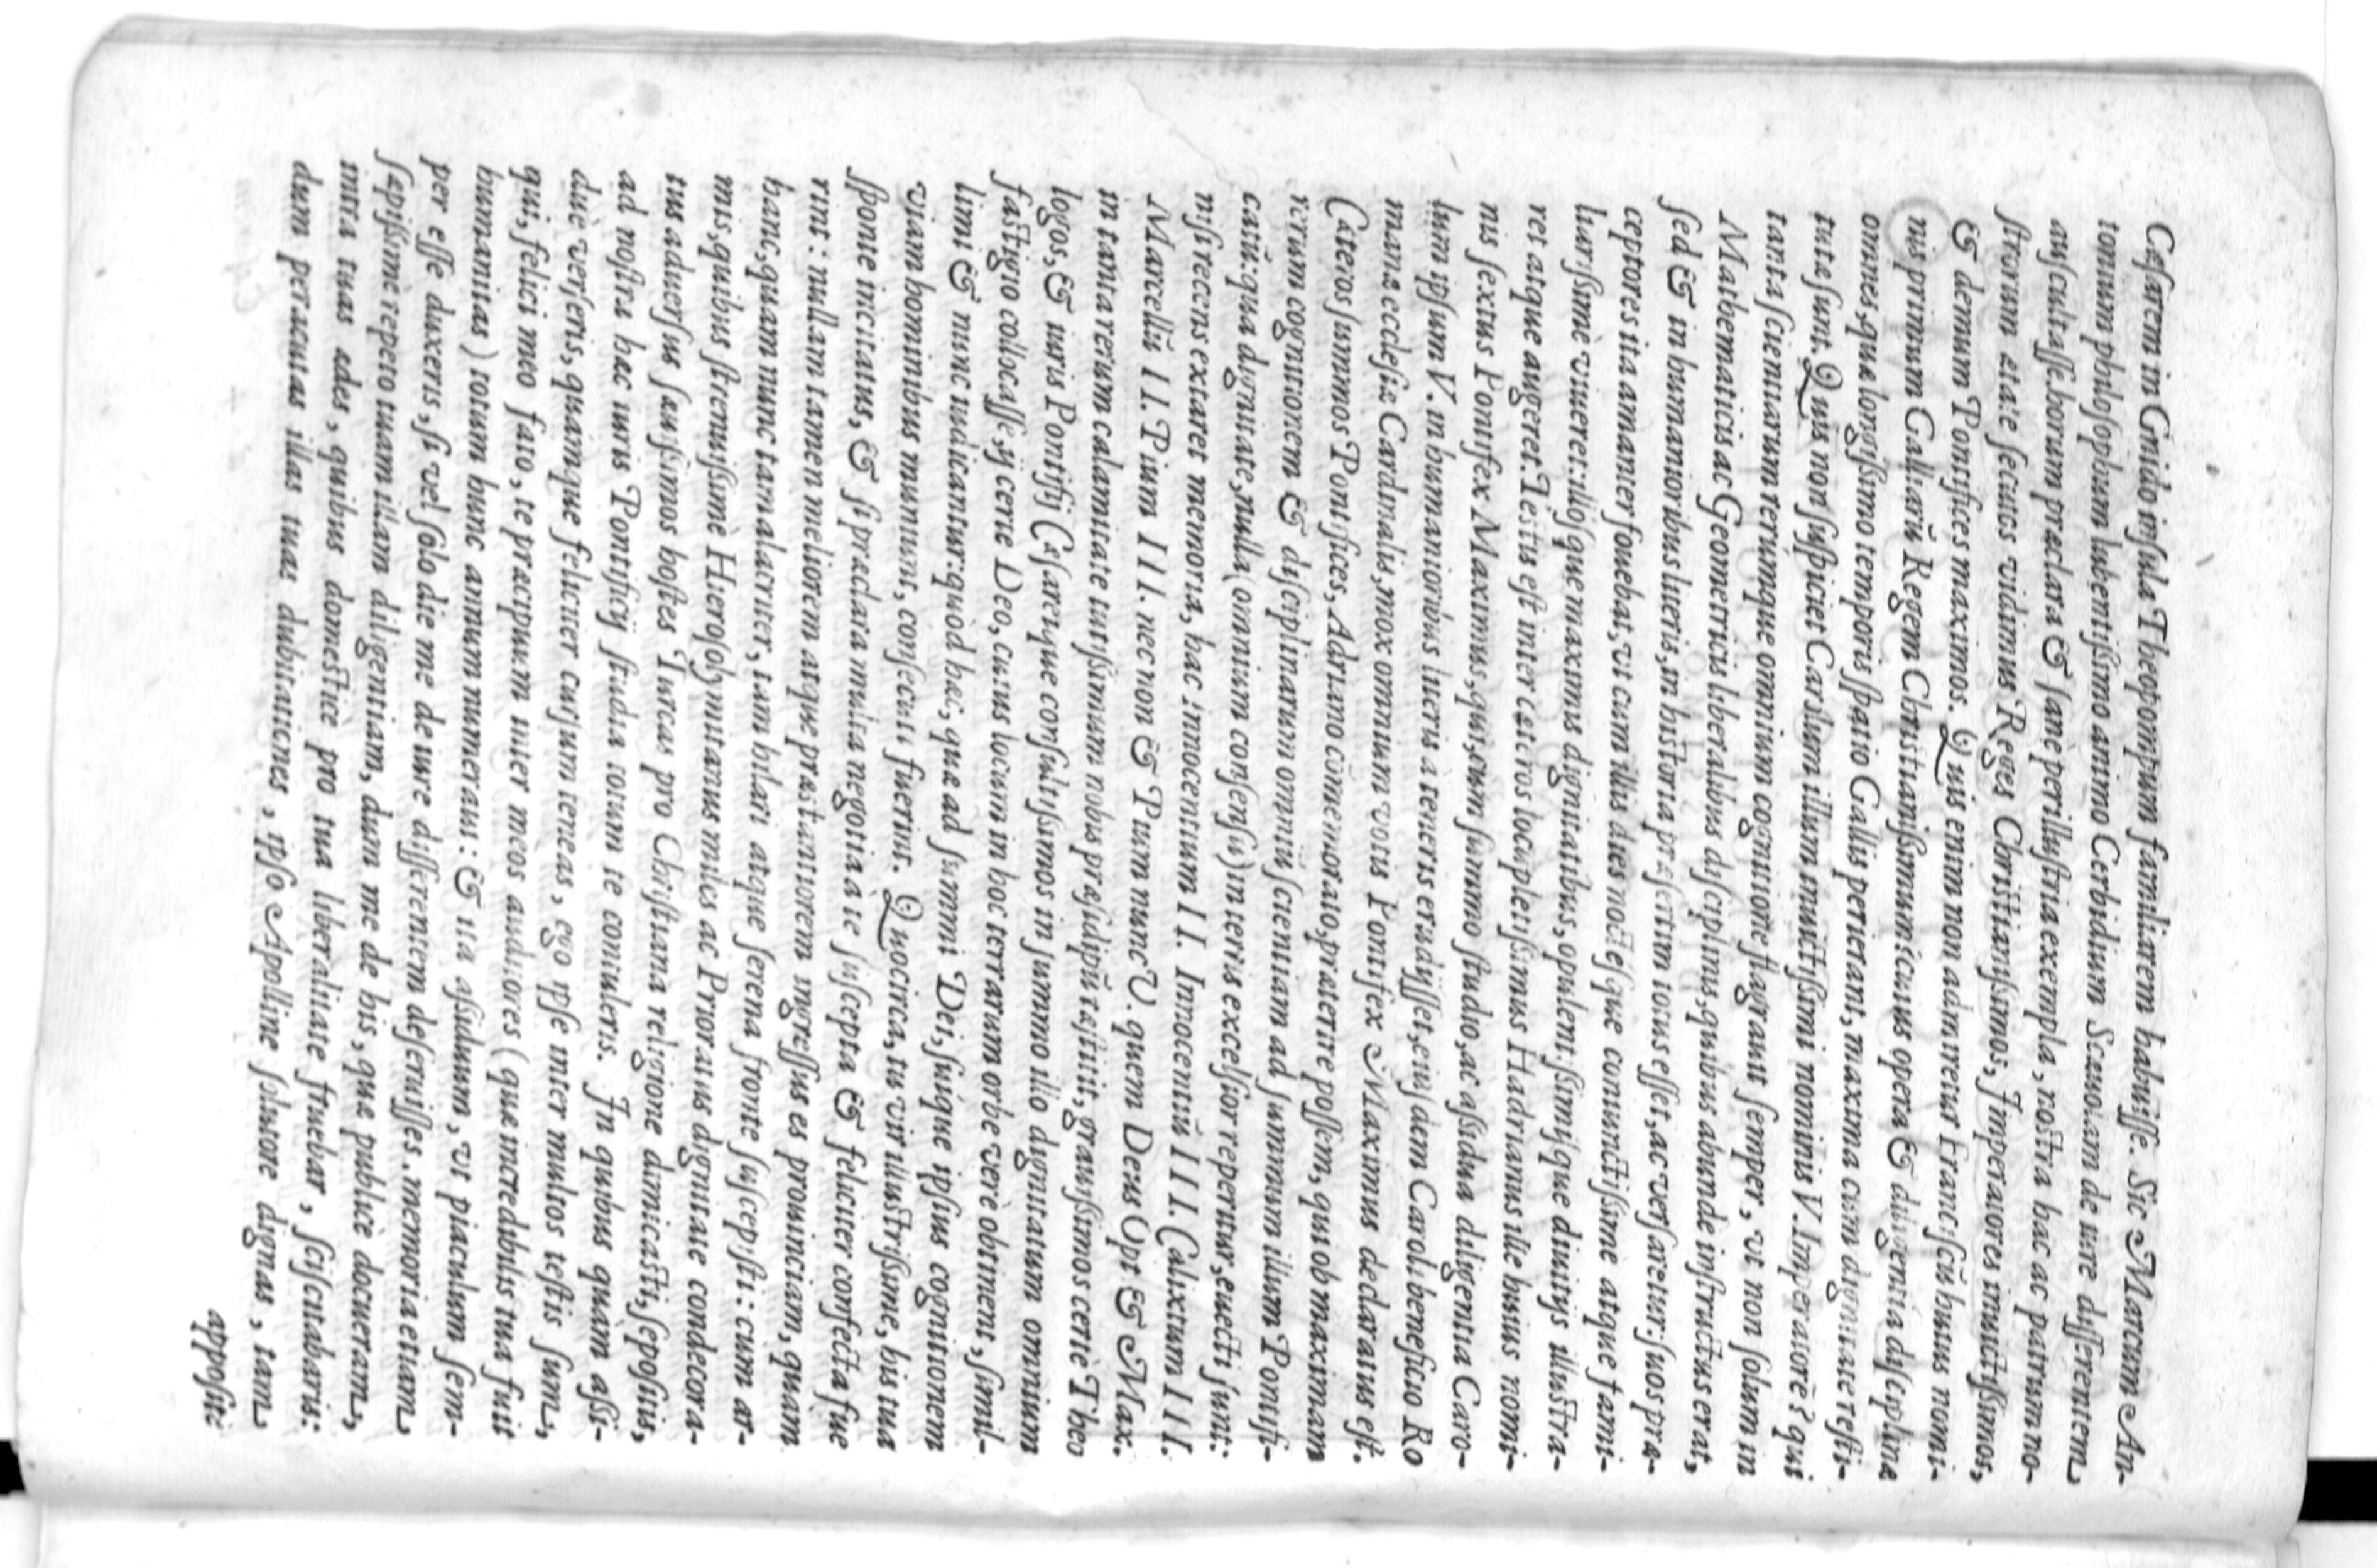 Cæsarem in Gnido insula Theopompum familiarem habuisse. Sic Marcum An-
tonium philosophum lubentissimo animo Cerbidium Scæuolam de iure disserentem
auscultasse. horum præclara & sanè perillustria exempla, nostra hac ac patrum no-
strorum ætate secutos vidimus Reges Christianissimos, Imperatores inuictissimos,
& demum Pontifices maximos. Quis enim non admiretur Franciscū huius nomi-
nis primum Galliarū Regem Christianissimum: cuius opera & diligentia disciplinæ
omnes, quæ longissimo temporis spatio Gallis perierant, maxima cum dignitate resti-
tutæ sunt. Quis non suspiciet Carolum illum inuictissimi nominis V. Imperatorē? qui
tanta scientiarum rerúmque omnium cognitione flagrauit semper, vt non solum in
Mathematicis ac Geometricis liberalibus disciplinis, quibus abunde instructus erat,
sed & in humanioribus literis, in historia præsertim totus esset, ac versaretur: suos præ-
ceptores ita amanter fouebat, vt cum illis dies noctésque coniunctissime atque fami-
liarissimè viueret: illósque maximis dignitatibus, opulentissimísque diuitijs illustra-
ret atque augeret. Testis est inter cæteros locupletissimus Hadrianus ille huius nomi-
nis sextus Pontifex Maximus, qui, cum summo studio, ac assidua diligentia Caro-
lum ipsum V. in humanioribus literis a teneris erudijsset, eiusdem Caroli beneficio Ro
manæ ecclesiæ Cardinalis, mox omnium votis Pontifex Maximus declaratus est.
Cæteros summos Pontifices, Adriano cōmemorato, præterire possem, qui ob maximam
rerum cognitionem & disciplinarum omniū scientiam ad summum illum Pontifi-
catū: qua dignitate, nulla (omnium consensu) in terris excelsior reperitur, euecti sunt:
nisi recens extaret memoria, hac innocentium II. Innocentiū III. Calixtum III.
Marcellū II. Pium III. nec non & Pium nunc V. quem Deus Opt & Max.
in tanta rerum calamitate tutissimum nobis præsidiū restituit, grauissimos certè Theo
logos, & iuris Pontificij Cæsareique consultissimos in summo illo dignitatum omnium
fastigio collocasse, ij certe Deo, cuius locum in hoc terrarum orbe verè obtinent, simil-
limi & nunc iudicantur: quòd hæc, quæ ad summi Dei, suíque ipsius cognitionem
viam hominibus muniunt, consecuti fuerint. Quocirca, tu vir illustrissime, his tua
sponte incitatus, & si præclara multa negotia à te suscepta & feliciter confecta fue
rint: nullam tamen meliorem atque præstantiorem ingressus es prouinciam, quàm
hanc, quam nunc tam alacriter, tam hilari atque serena fronte suscepisti: cum ar-
mis, quibus strenuissimè Hierosolymitanus miles ac Prioratus dignitate condecora-
tus aduersus sæuissimos hostes Turcas pro Christiana religione dimicasti, sepositis,
ad nostra hæc iuris Pontificij studia totum te contuleris. In quibus quàm assi-
duè verseris, quamque feliciter cursum teneas, ego ipse inter multos testis sum,
qui, felici meo fato, te præcipuum inter meos auditores (quæ incredibilis tua fuit
humanitas) totum hunc annum numeraui: & ita assiduum, vt piaculum sem-
per esse duxeris, si vel solo die me de iure disserentem deseruisses. memoria etiam
sæpissimè repeto tuam illam diligentiam, dum me de his, quæ publicè docueram,
intra tuas ædes, quibus domesticè pro tua liberalitate fruebar, sciscitabaris:
dum peracutas illas tuas dubitationes, ipso Apolline solutore dignas, tam
appositè